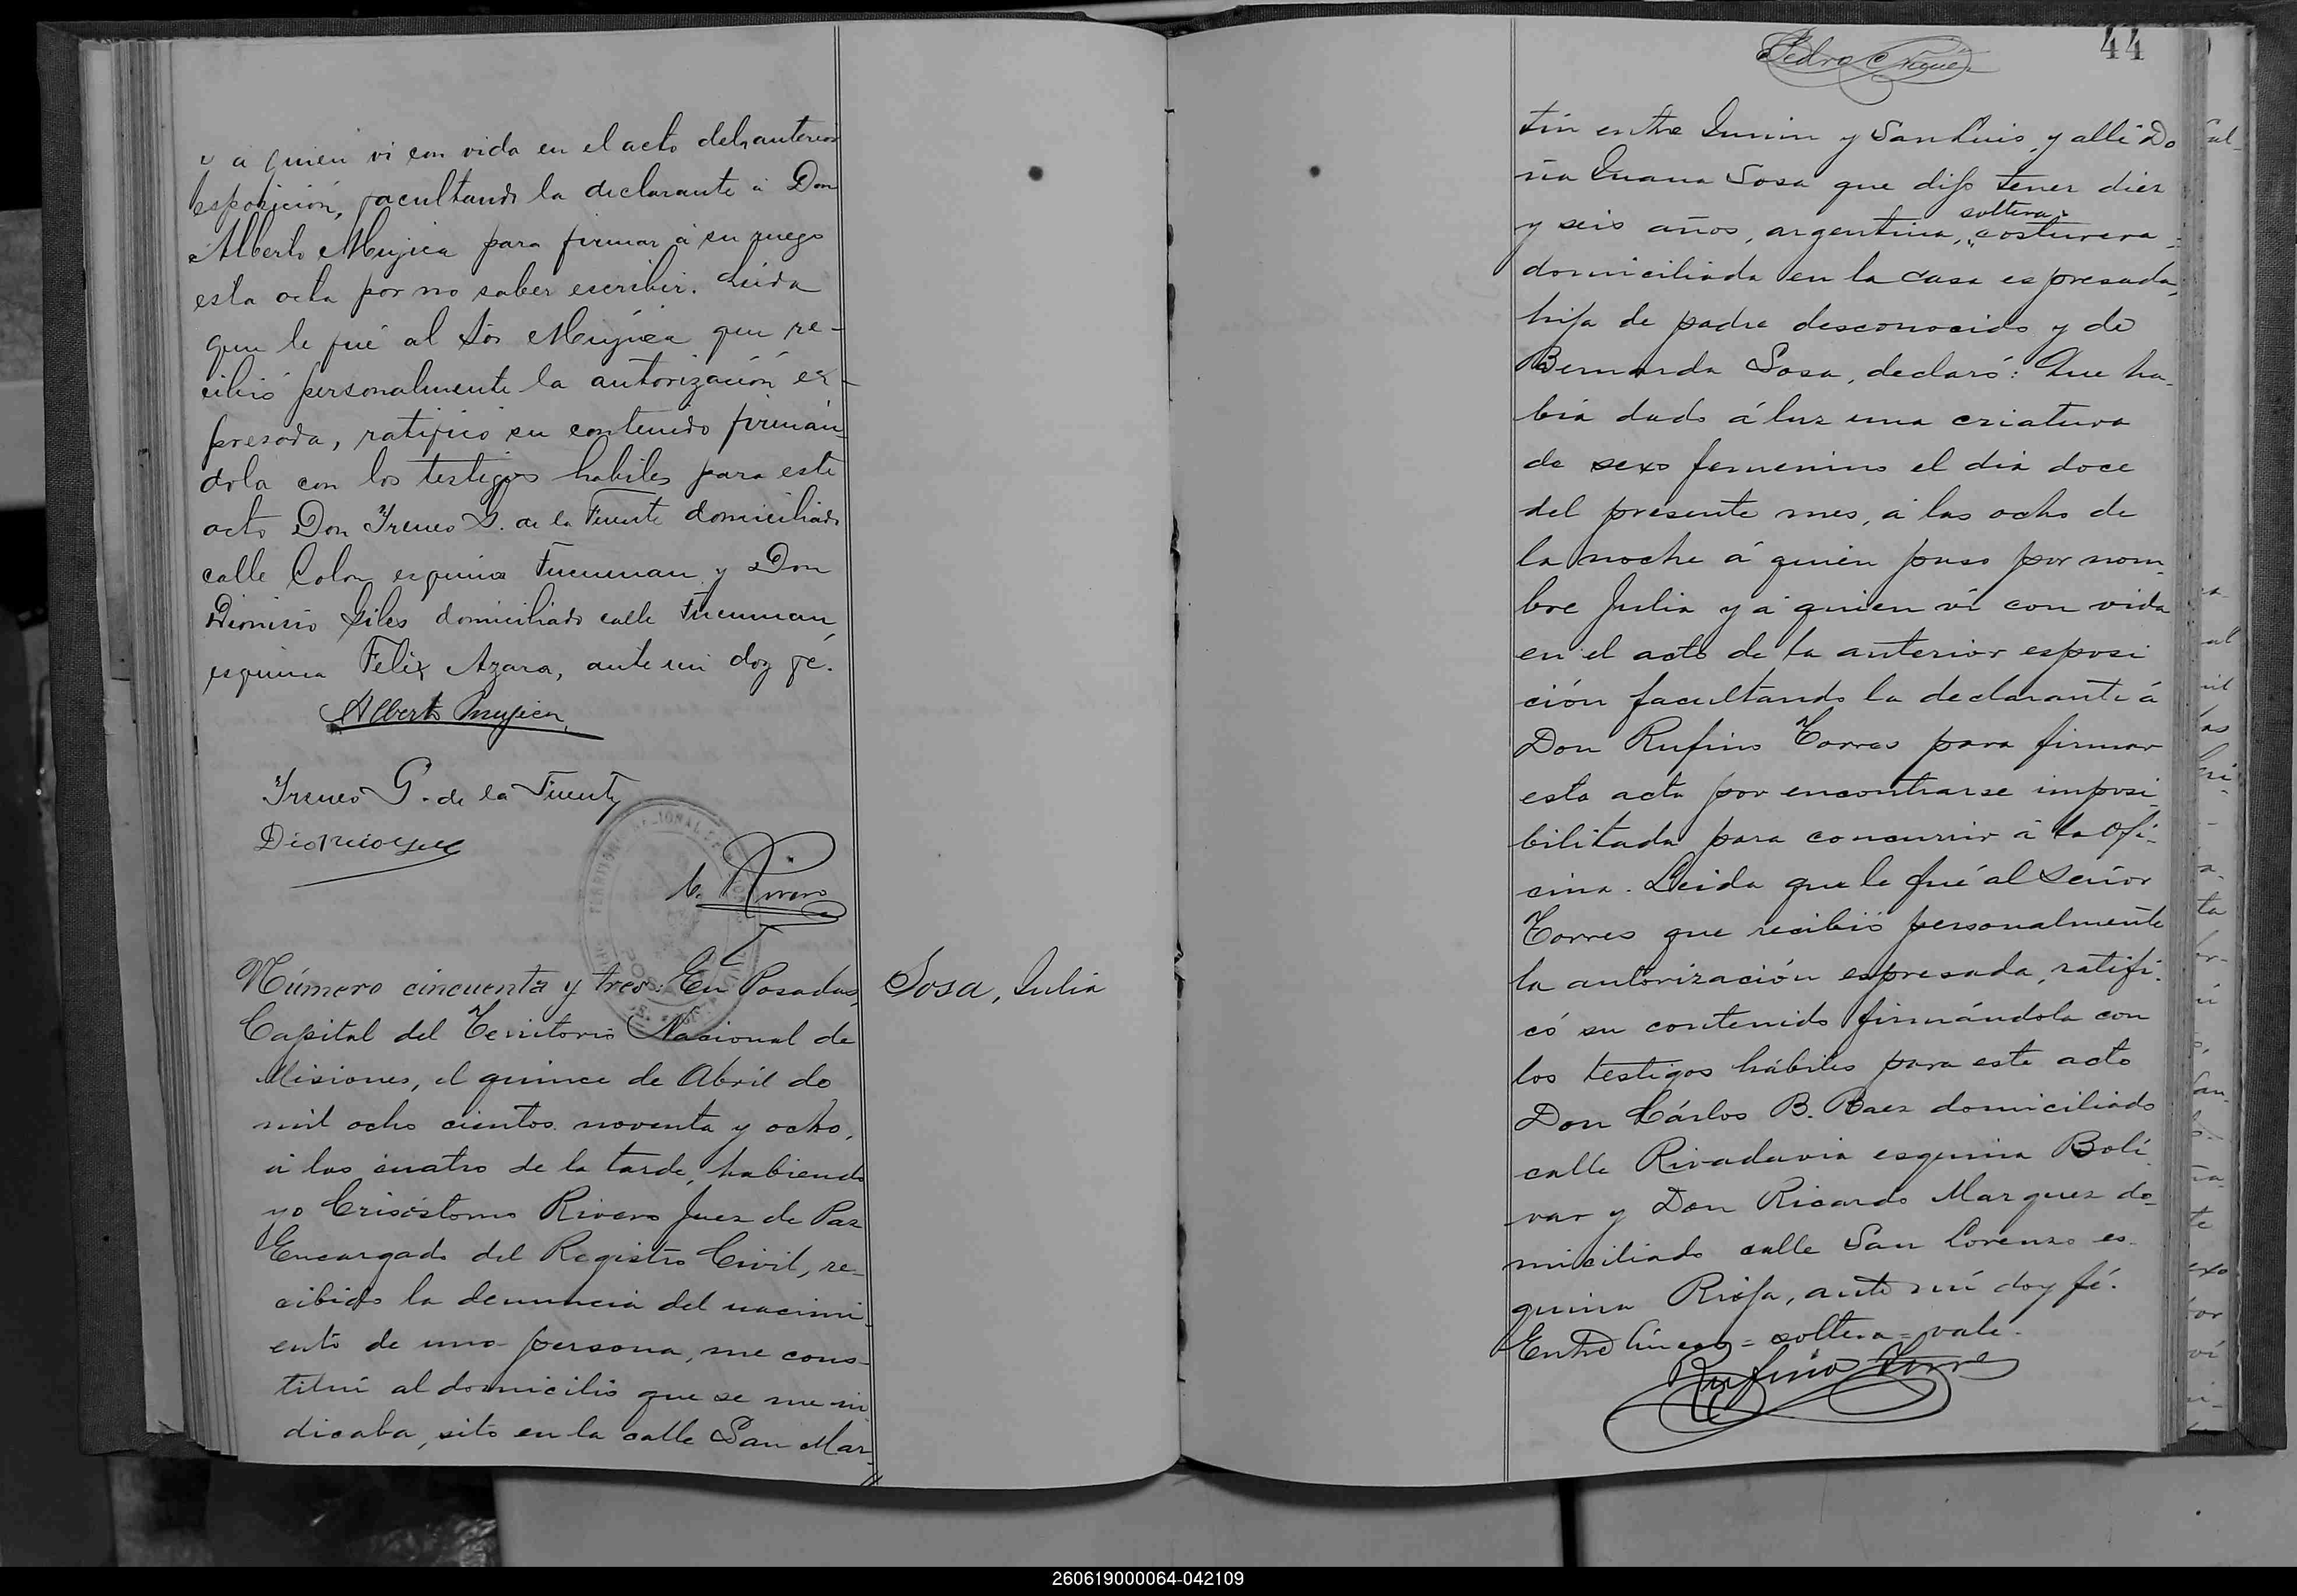 y a quien vi con vida en el acto de la anterior
esposición, facultando la declarante á Don
Alberto Mujica para firmar á su ruego
esta acta por no saber escribir. Leida
que le fué al Sór Mujica que re-
cibió personalmente la autorización es-
presada, ratificó su contenido firmán-
dola con los testigos habiles para este
acto Don Ireneo G. de la Fuente domiciliado
calle Colon esquina Tucuman y Don
Dionisio Giles domiciliado calle Tucuman,
esquina Felix Azara, ante mi doy fé.
Alberto Mujica
Ireneo G. de la Fuente
C. Rivero
Número cincuenta y tres: En Posadas,
Capital del Territorio Nacional de
Misiones, el quince de Abril de
mil ocho cientos noventa y ocho,
á las cuatro de la tarde, habiendo
yo Crisóstomo Rivero Juez de Paz
Encargado del Registro Civil, re-
cibido la denuncia del nacimi-
ento de una persona, me cons-
tituí al domicilio que se me in
dicaba, sito en la calle San Mar-
Sosa, Julia
44
tin entre Junin y San Luis, y allí Do
ña Juana Sosa que dijo tener diez
y seis años, argentina, soltera, costurera,
domiciliada en la casa espresada,
hija de padre desconocido y de
Bernarda Sosa, declaró: Que ha-
bia dado á luz una criatura
de sexo femenino el dia doce
del presente mes, á las ocho de
la noche á quien puso por nom-
bre Julia y á quien ví con vida
en el acto de la anterior esposi
ción facultando la declarante á
Don Rufino Torres para firmar
esta acta por encontrarse imposi-
bilitada para concurrir á la Ofi-
cina. Leida que le fué al Señor
Torres que recibió personalmente
la autorización espresada, ratifi-
có su contenido firmándola con
los testigos hábiles para este acto
Don Cárlos B. Baez domiciliado
calle Rivadavia esquina Bolí
var y Don Ricardo Marquez do-
miciliado calle San Lorenzo es-
quina Rioja, ante mí doy fé.
Entre lineas = soltera = vale.
Rufino Torres
260619000064-042109